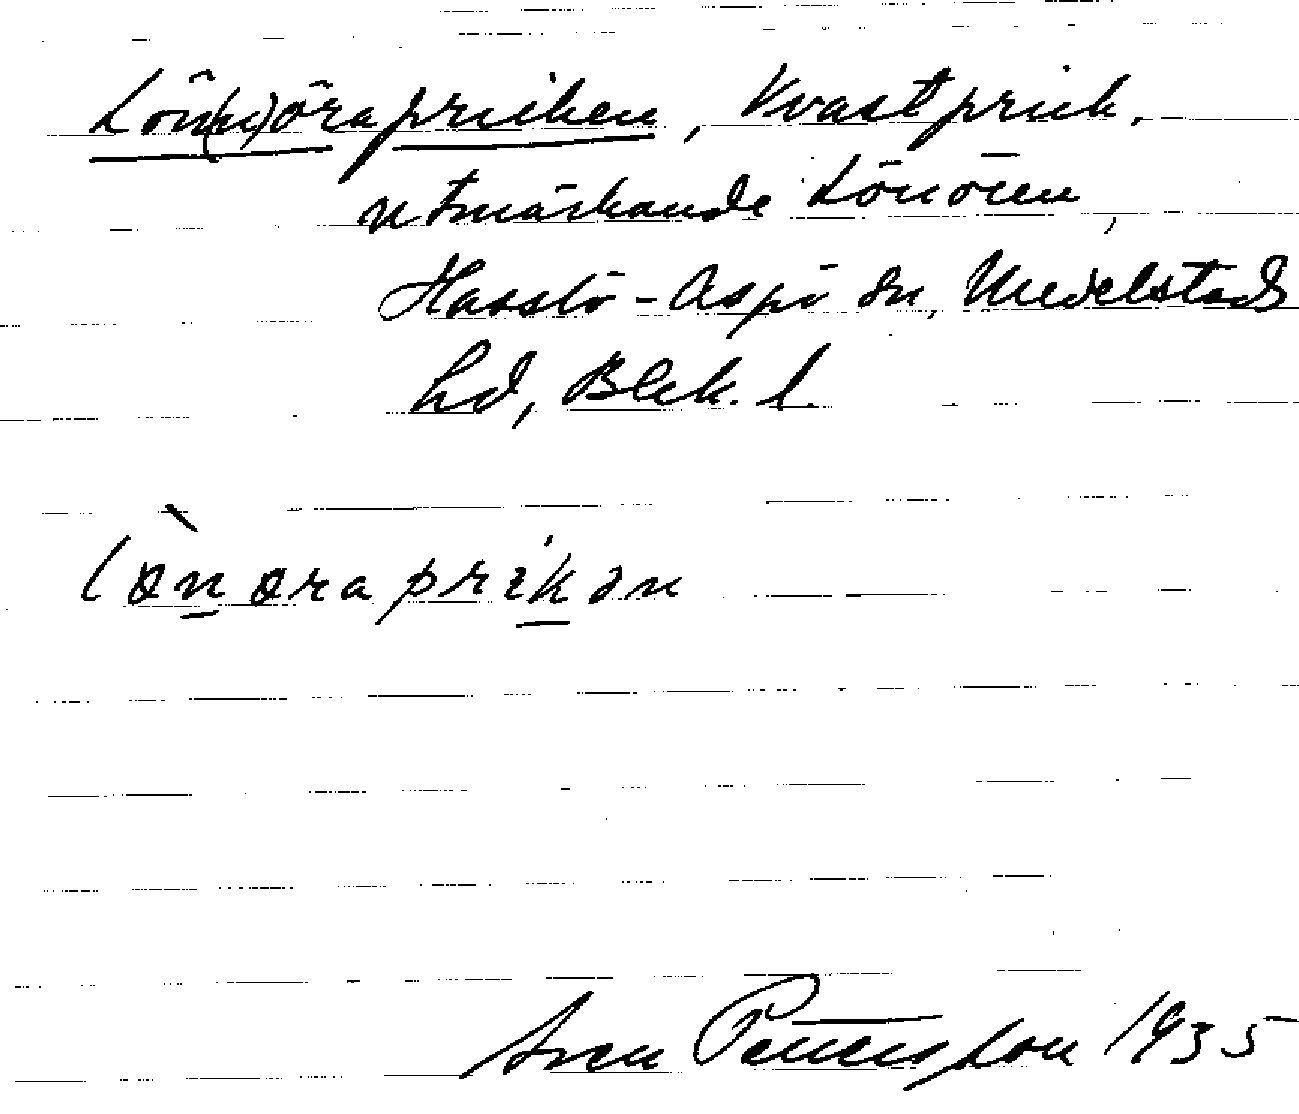 Lön(n)örapricken, Kvastprick,
utmärkande Lönören,
Hasslö-Aspö sn, Medelstads
hd, Blek. l.
lø̀nøraprikən
Sven Petterson 1935